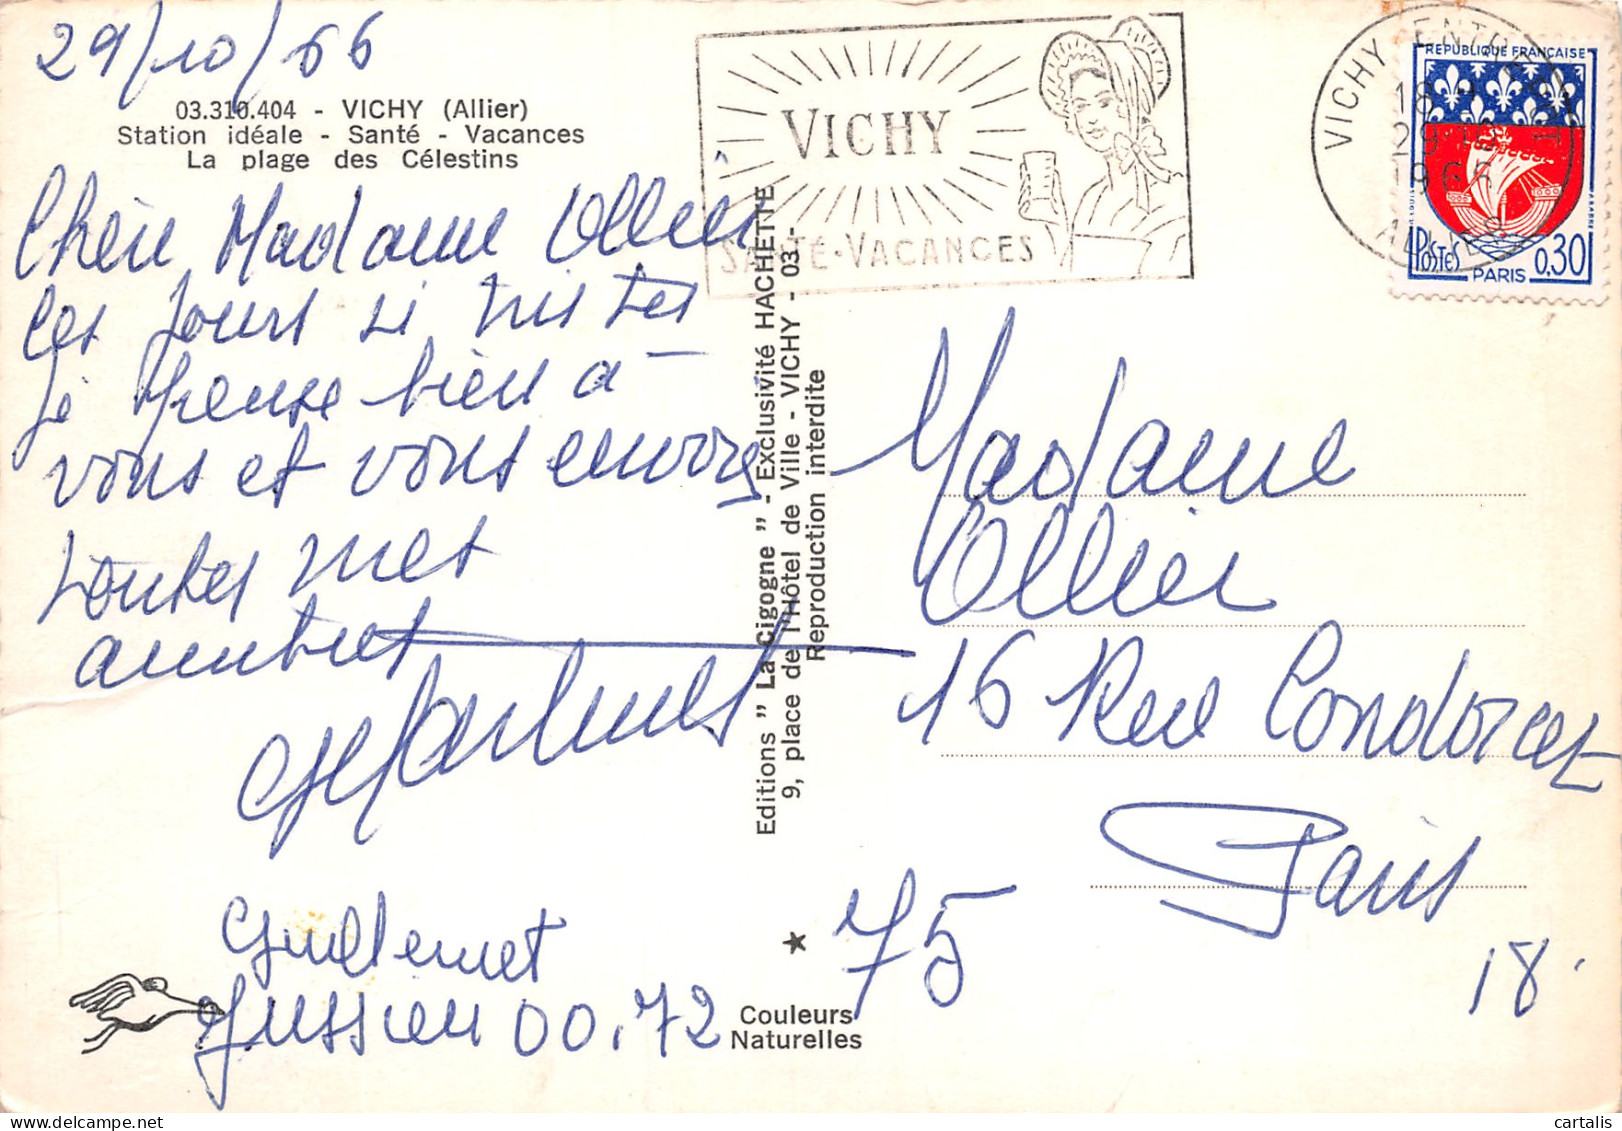 29/10/66
03.310.404 - VICHY (Allier)
Station idéale - Santé - Vacances
La plage des Célestins
Chère Madame Ollier
Ces jours si tristes
Je pense bien à
vous et vous envoie
toutes mes
amitiés
Guillemet
Jussieu 00.72
Editions " La Cigogne " - Exclusivité HACHETTE
9, place de l'Hôtel de Ville - VICHY - 03 -
Reproduction interdite
Couleurs
Naturelles
VICHY
SANTÉ-VACANCES
VICHY
18 H
29-10
1966
ALLIER
REPUBLIQUE FRANÇAISE
POSTES
PARIS
0,30
Madame
Ollier
16 Rue Condorcet
Paris
75
18.
cartalis